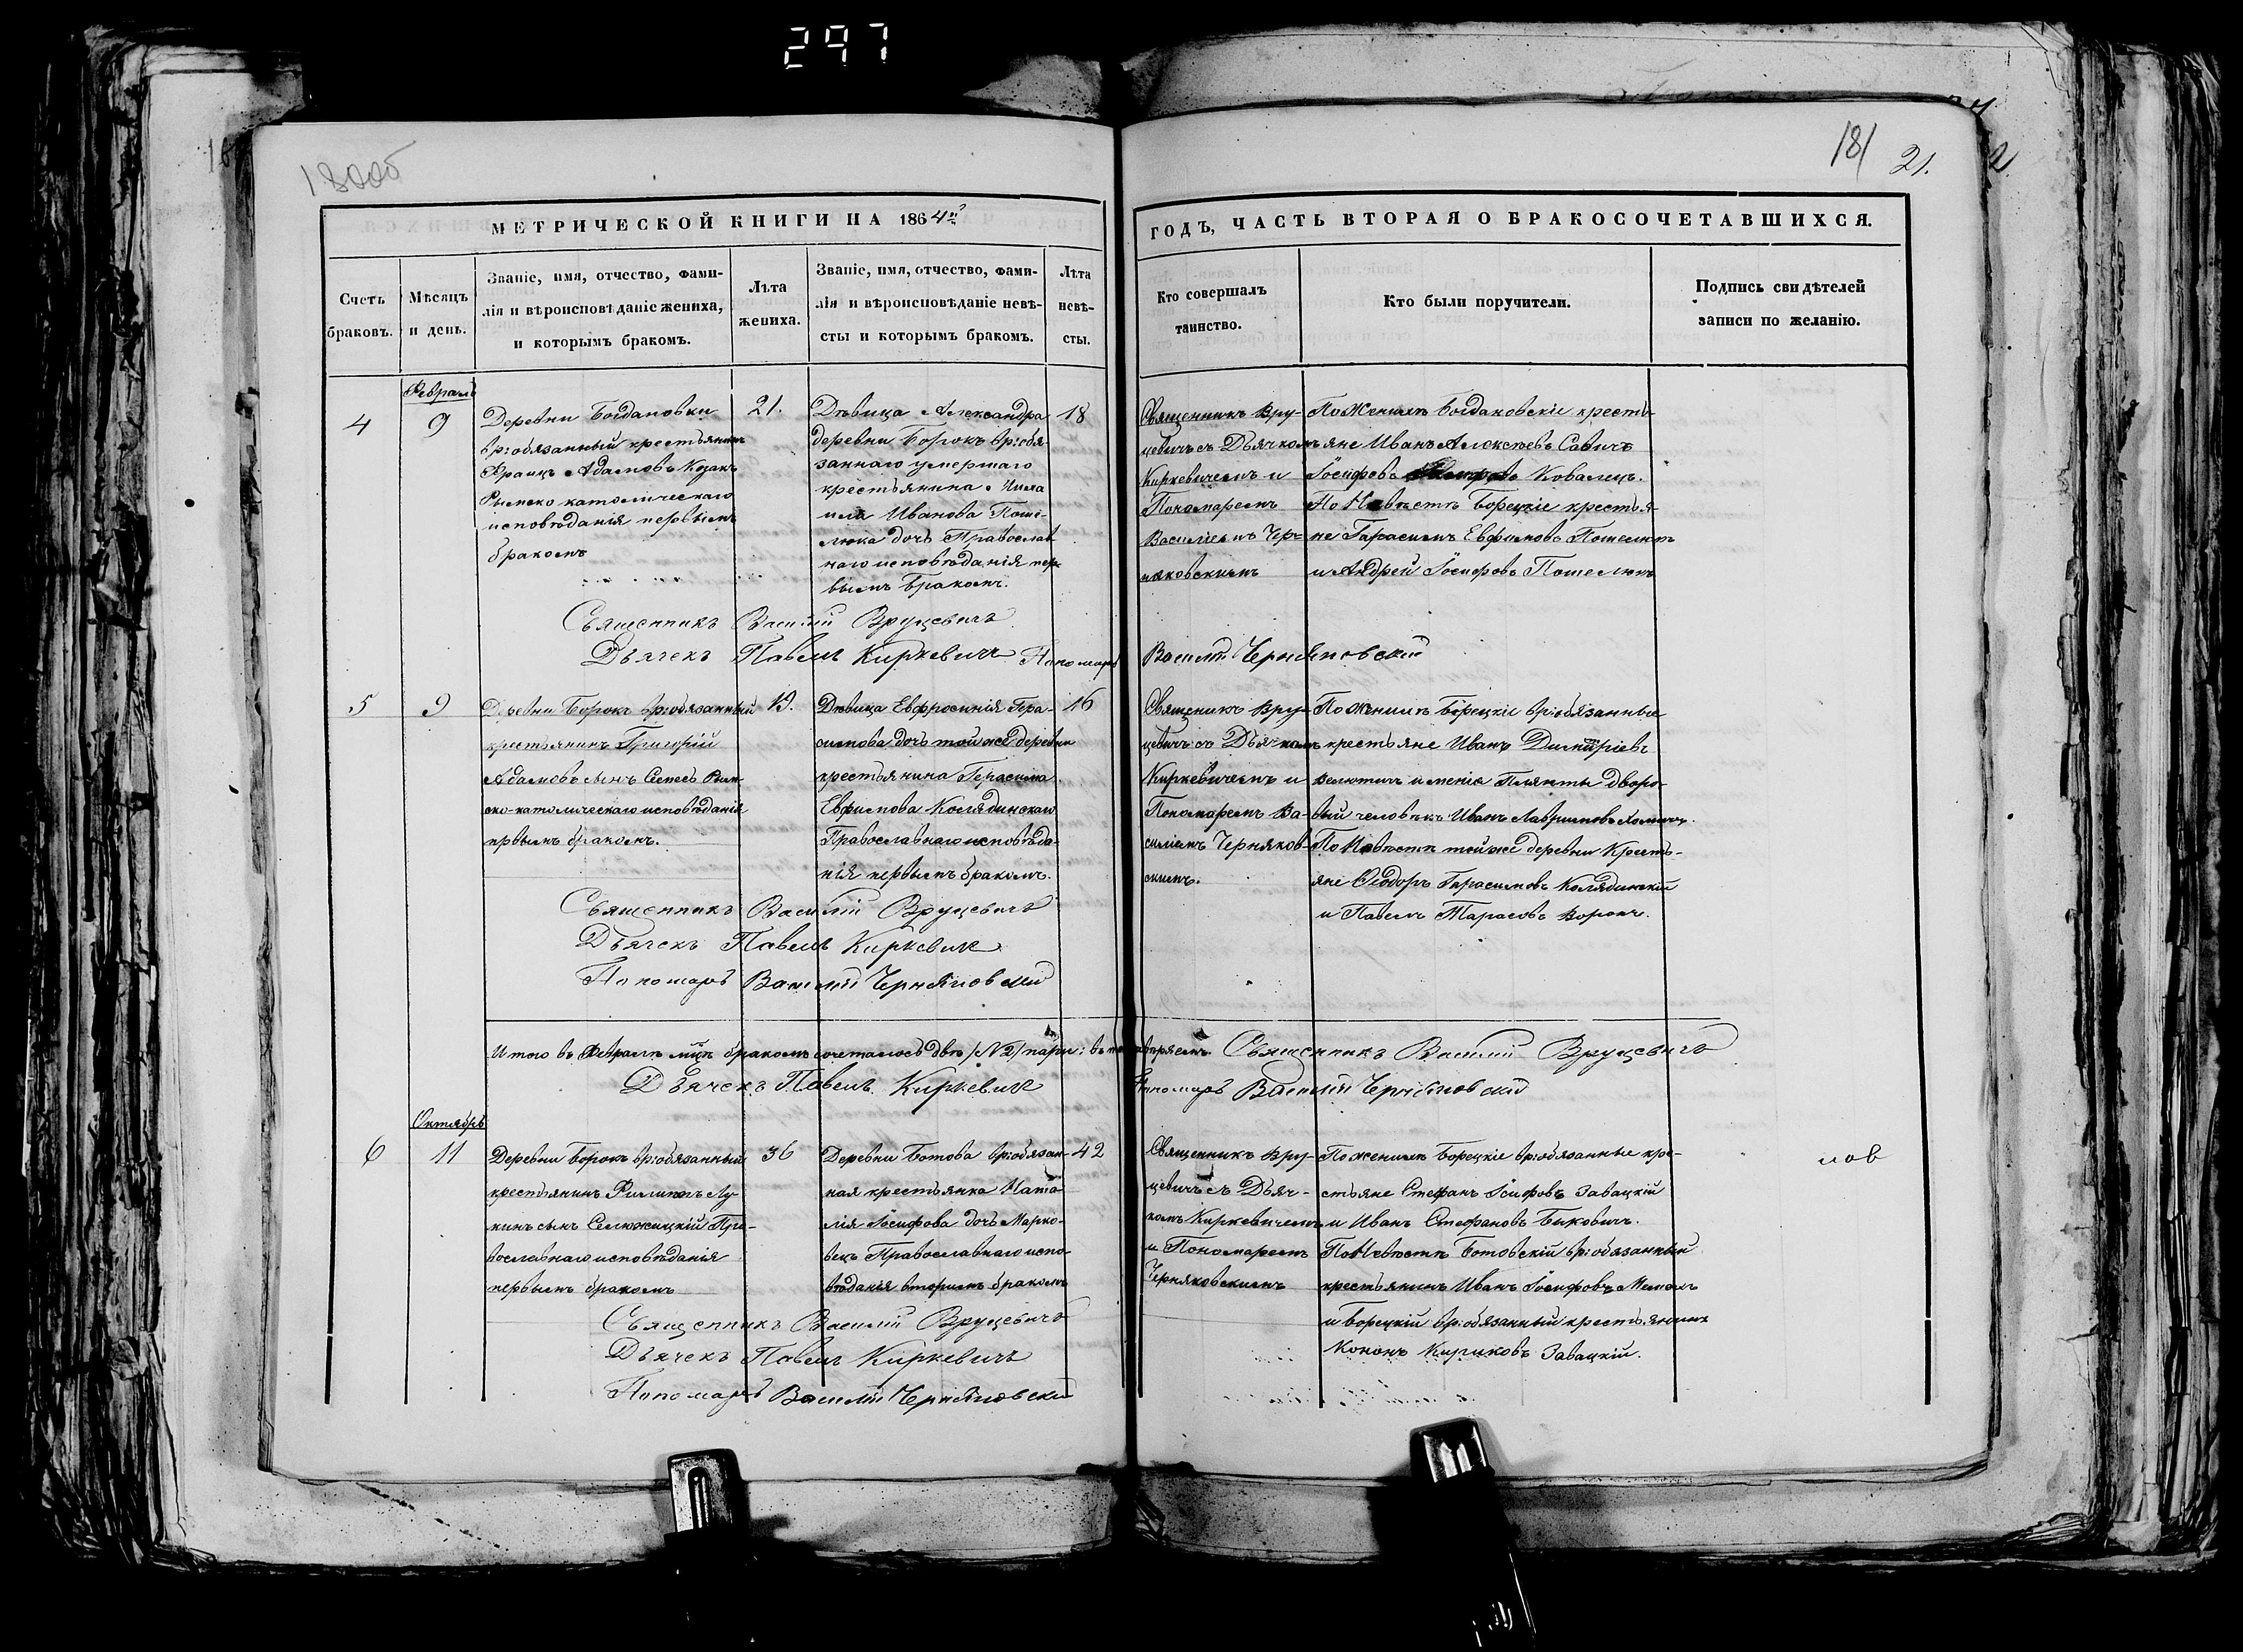 297
181
21.
МЕТРИЧЕСКОЙ КНИГИ НА 1864й
ГОДЪ, ЧАСТЬ ВТОРАЯ О БРАКОСОЧЕТАВШИХСЯ.
Счетъ
браковъ.
Мѣсяцъ
и день.
Званіе, имя, отчество, фами-
лія и вѣроисповѣданіе жениха,
и которымъ бракомъ.
Лѣта
жениха.
Званіе, имя, отчество, фами-
лія и вѣроисповѣданіе невѣ-
сты и которымъ бракомъ.
Лѣта
невѣ-
сты.
Кто совершалъ
таинство.
Кто были поручители.
Подпись свидѣтелей
записи по желанію.
Февраль
4
9
Деревни Богдановки
вр:обязанный крестьянинъ
Францъ Адамовъ Козакъ
Римско католическаго
исповѣданія первымъ
бракомъ
21.
Дѣвица Александра
деревни Борокъ вр:обя-
заннаго умершаго
крестьянина
Иванова
дочь Православ
наго исповѣданія пер-
вымъ бракомъ.
18
Священникъ Вру-
цевичъ съ Дьячкомъ
Киркевичемъ и
Пономаремъ
Василіемъ Чер-
няковскимъ
По Женихѣ Богдановскіе кресть-
яне Иванъ Алексѣевъ Савичъ
Іосифовъ Ковалецъ.
По Невѣстѣ Борецкіе крестья-
не Гарасимъ Евфимовъ
и Андрей Іосифовъ Пошелюкъ
Священникъ Василій Вруцевичъ
Дьячекъ Павелъ Киркевичъ Пономарь Василій Черняковскій
5
9
Деревни Борокъ вр:обязанный
крестьянинъ Григорій
Адамовъ сынъ Рим-
ско-католическаго исповѣданія
первымъ бракомъ.
19.
Дѣвица Евфросинія Гра-
симова дочь той же деревни
крестьянина Герасима
Евфимова Колядинскаго
Православнаго исповѣда-
нія первымъ бракомъ.
16
Священникъ Вру-
цевичъ съ Дьячкомъ
Киркевичемъ и
Пономаремъ Ва-
силіемъ Черняков-
скимъ.
По женихѣ Борецкіе вр:обязанные
крестьяне Иванъ Димитріевъ
имѣнія Плянты дворо-
вый человѣкъ Иванъ
По Невѣстѣ той же деревни Кресть-
яне Ѳеодоръ Гарасимовъ Колядинскій
и Павелъ Тарасовъ Воронъ.
Священникъ Василій Вруцевичъ
Дьячекъ Павелъ Киркевичъ
Пономарь Василій Черняковскій
Итого въ Февралѣ мцѣ бракомъ сочеталось двѣ /№ 2/ пары: въ томъ Священникъ Василій Вруцевичъ
Дьячекъ Павелъ Киркевичъ Пономарь Василій Черняковскій
Октябрь
6
11
Деревни Борокъ вр:обязанный
крестьянинъ Филиппъ Лу-
кинъ сынъ Селюжицкій Пра-
вославнаго исповѣданія
первымъ бракомъ
36
Деревни Ботова вр:обязан-
ная крестьянка Ната-
лія Іосифова дочь Марко-
вецъ Православнаго испо-
вѣданія вторымъ бракомъ
42
Священникъ Вру-
цевичъ съ Дьяч-
комъ Киркевичемъ
и Пономаремъ
Черняковскимъ
По женихѣ Борецкіе вр:обязанные кре-
стьяне Стефанъ Іосифовъ Завацкій
и Иванъ Стефановъ Биковичъ.
По Невѣстѣ Ботовскій вр:обязанный
крестьянинъ Иванъ Іосифовъ
и Борецкій вр:обязанный крестьянинъ
Кононъ Кириковъ Завацкій.
Священникъ Василій Вруцевичъ
Дьячекъ Павелъ Киркевичъ
Пономарь Василій Черняковскій